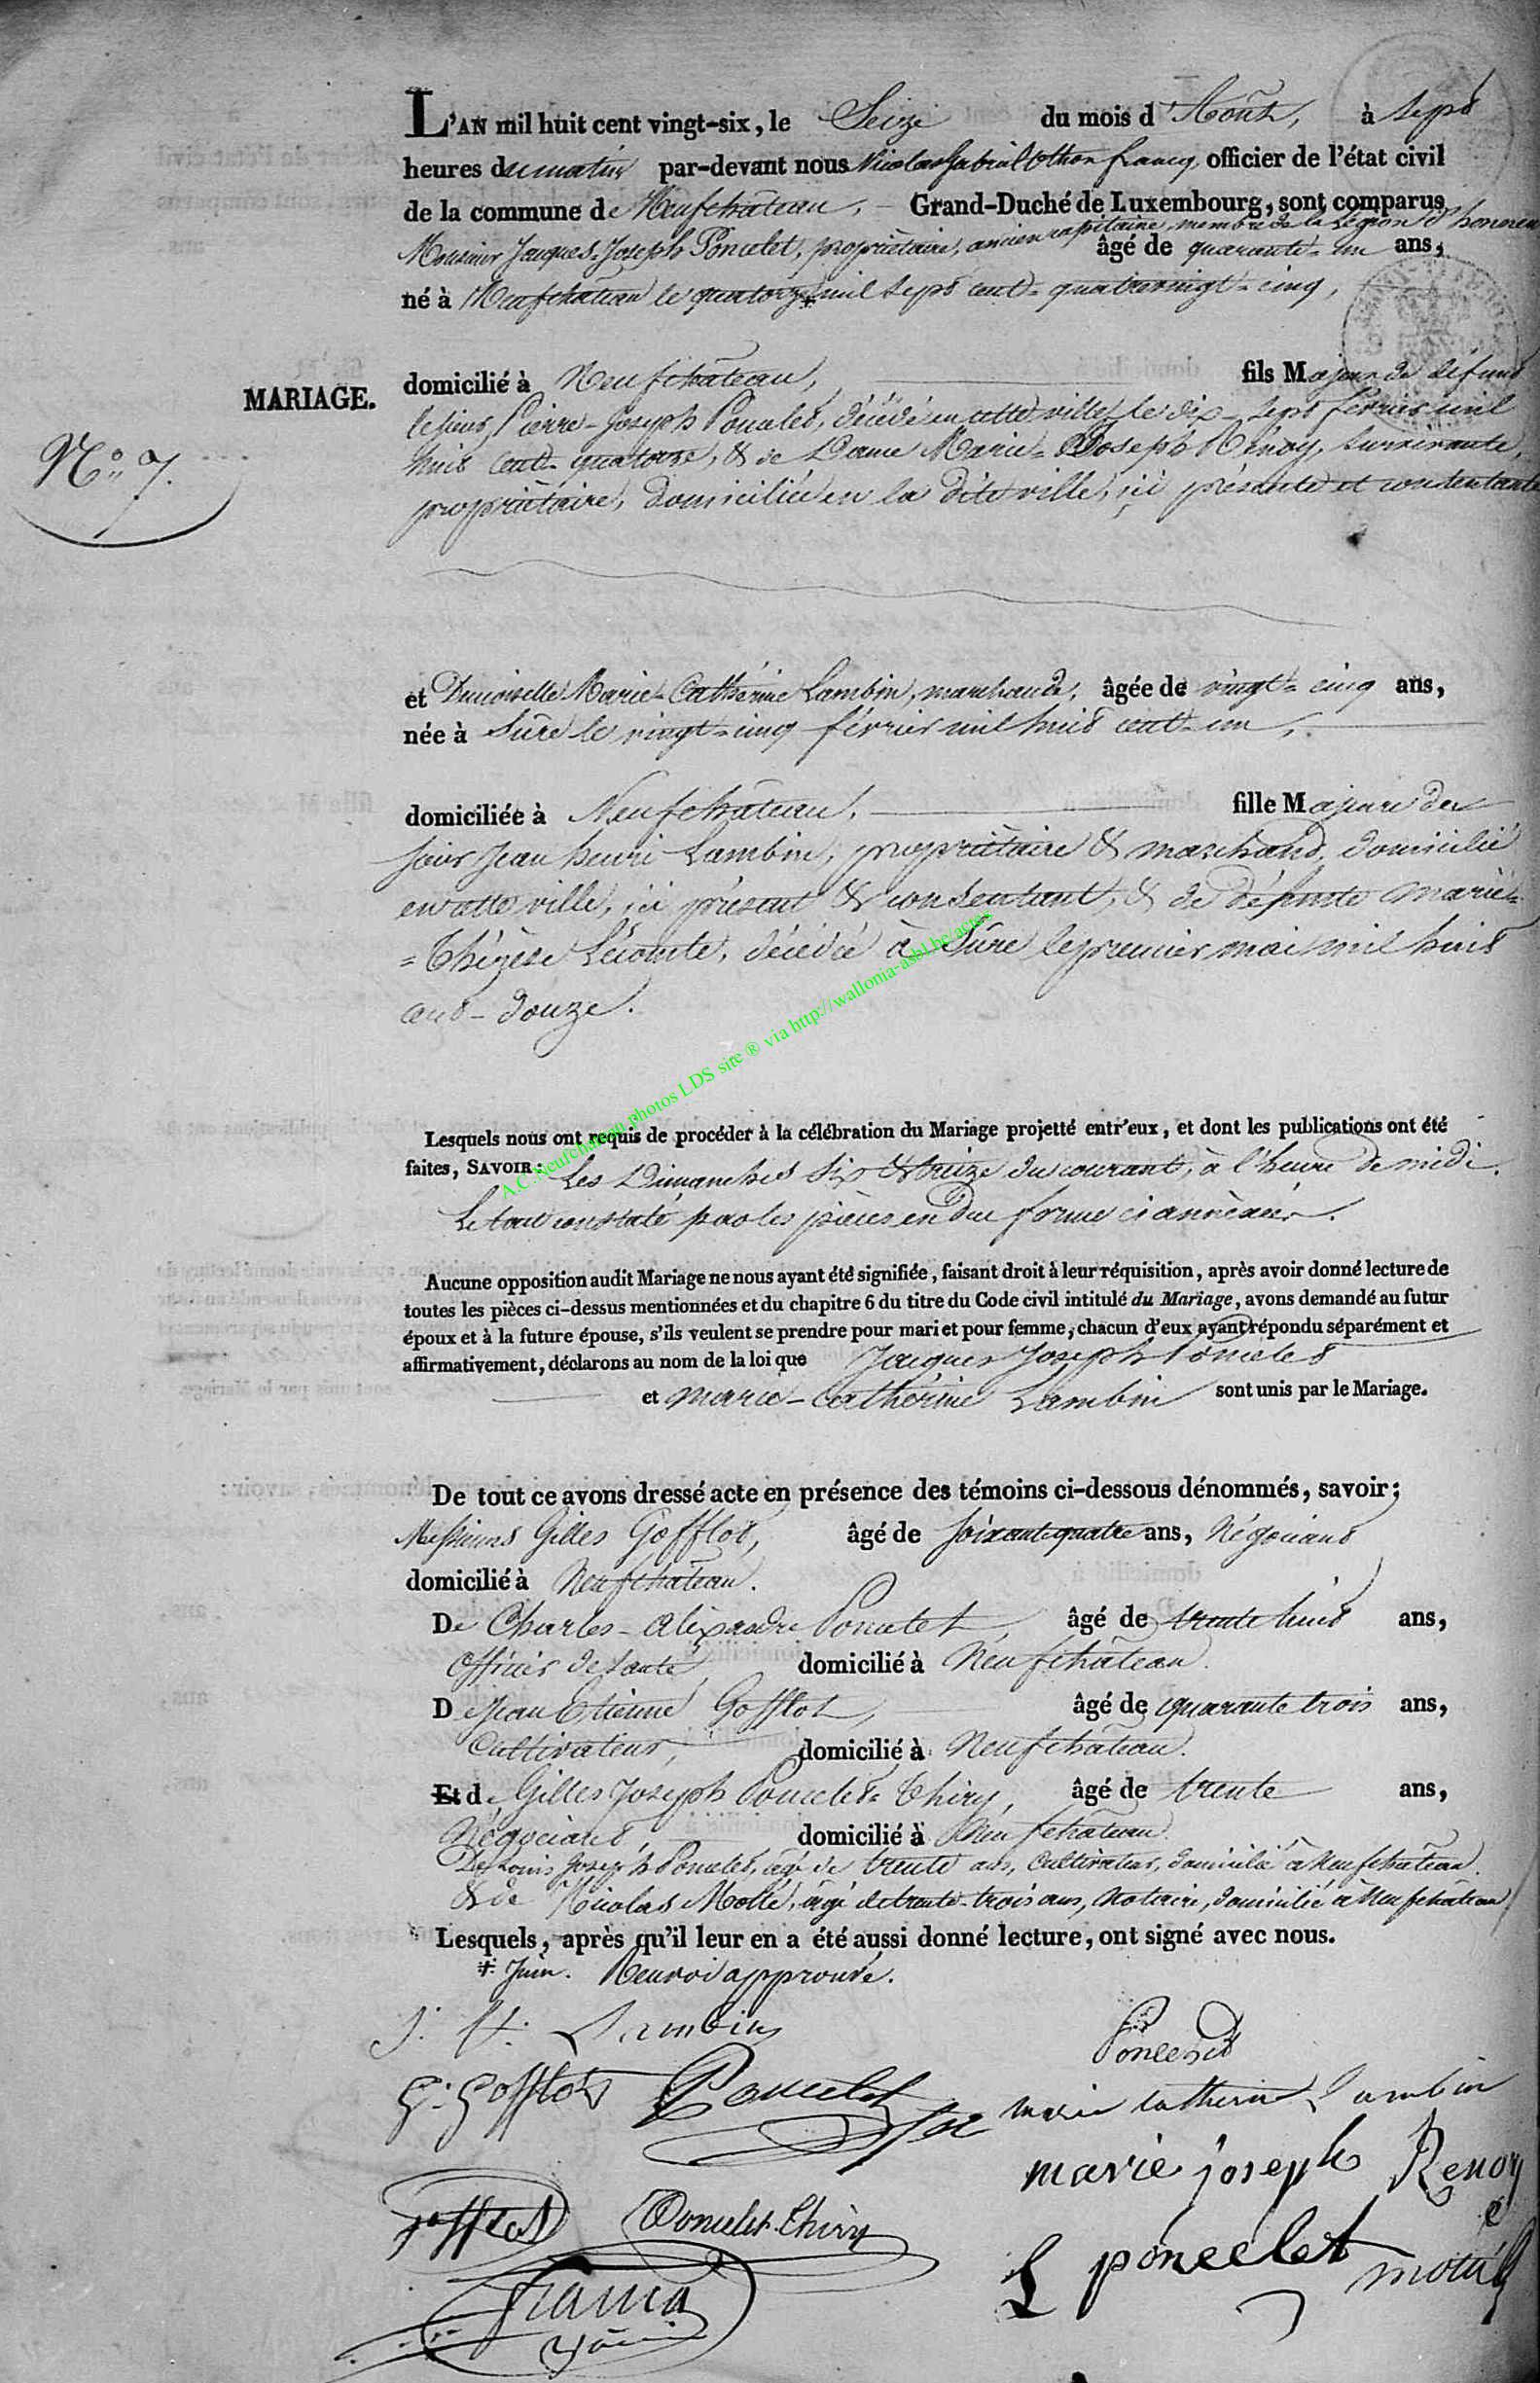 L'AN mil huit cent vingt-six, le Seize du mois d'Août, à sept
heures du matin par-devant nous Nicolas Gabriel Othon francq, officier de l'état civil
de la commune de Neufchâteau, Grand-Duché de Luxembourg, sont comparus
Monsieur Jacques-Joseph Poncelet, propriètaire, ancien capitaine, membre de la Légion d'honneur âgé de quarante-un ans,
né à Neufchâteau le quatorze* mil sept cent-quatrevingt-cinq,
MARIAGE.
N.° 7.
domicilié à Neufchâteau, fils Majeur de défunt
le sieur Pierre-Joseph Poncelet, décédé en cette ville le dix-sept février mil
huit cent-quatorze, & de Dame Marie-Joseph Rénoy, survivante,
propriètaire, domiciliée en la dite ville, ici présente et consentante
et Demoiselle Marie-Cathérine Lambin, marchande, âgée de vingt-cinq ans,
née à Sûre le vingt-cinq février mil huit cent-un,
domiciliée à Neufchâteau, fille Majeure de
sieur Jean henri Lambin, propriètaire & marchand, domicilié
en cette ville, ici présent & consentant, & de défunte Marie-
=Thérèse Lécomte, décédée à Sûre le premier mai mil huit
cent-douze.
Lesquels nous ont requis de procéder à la célébration du Mariage projetté entr'eux, et dont les publications ont été
faites, SAVOIR: Les Dimanches six & treize du courant, à l'heure de midi.
Le tout constaté par les pièces en due forme ci annèxées.
Aucune opposition audit Mariage ne nous ayant été signifiée, faisant droit à leur réquisition, après avoir donné lecture de
toutes les pièces ci-dessus mentionnées et du chapitre 6 du titre du Code civil intitulé du Mariage, avons demandé au futur
époux et à la future épouse, s'ils veulent se prendre pour mari et pour femme, chacun d'eux ayant répondu séparément et
affirmativement, déclarons au nom de la loi que Jacques Joseph Poncelet
et Marie-Cathérine Lambin sont unis par le Mariage.
De tout ce avons dressé acte en présence des témoins ci-dessous dénommés, savoir;
Messieurs Gilles Gofflot, âgé de soixante quatre ans, Négociant
domicilié à Neufchâteau.
De Charles-Aléxandre Poncelet âgé de trente huit ans,
officier de santé, domicilié à Neufchâteau.
De Jean Etienne Gofflot, âgé de quarante trois ans,
Cultivateur, domicilié à Neufchâteau.
Et de Gilles Joseph Poncelet-Thiry, âgé de trente ans,
Négociant, domicilié à Neufchâteau.
De Louis Joseph Poncelet, âgé de trente ans, cultivateur, domicilié à Neufchâteau.
& de Nicolas Motté, âgé de trente-trois ans, Notaire, domicilié à Neufchâteau
Lesquels, après qu'il leur en a été aussi donné lecture, ont signé avec nous.
* Juin. Renvoi approuvé.
J. H. Lambin
Poncelet
G. Gofflot Poncelet
marie catherine Lambin
marie joseph Renoy
Gofflot Poncelet-Thiry
L poncelet
motté
Francq
A.C.Neufchateau photos LDS site ® via http://wallonia-asbl.be/actes